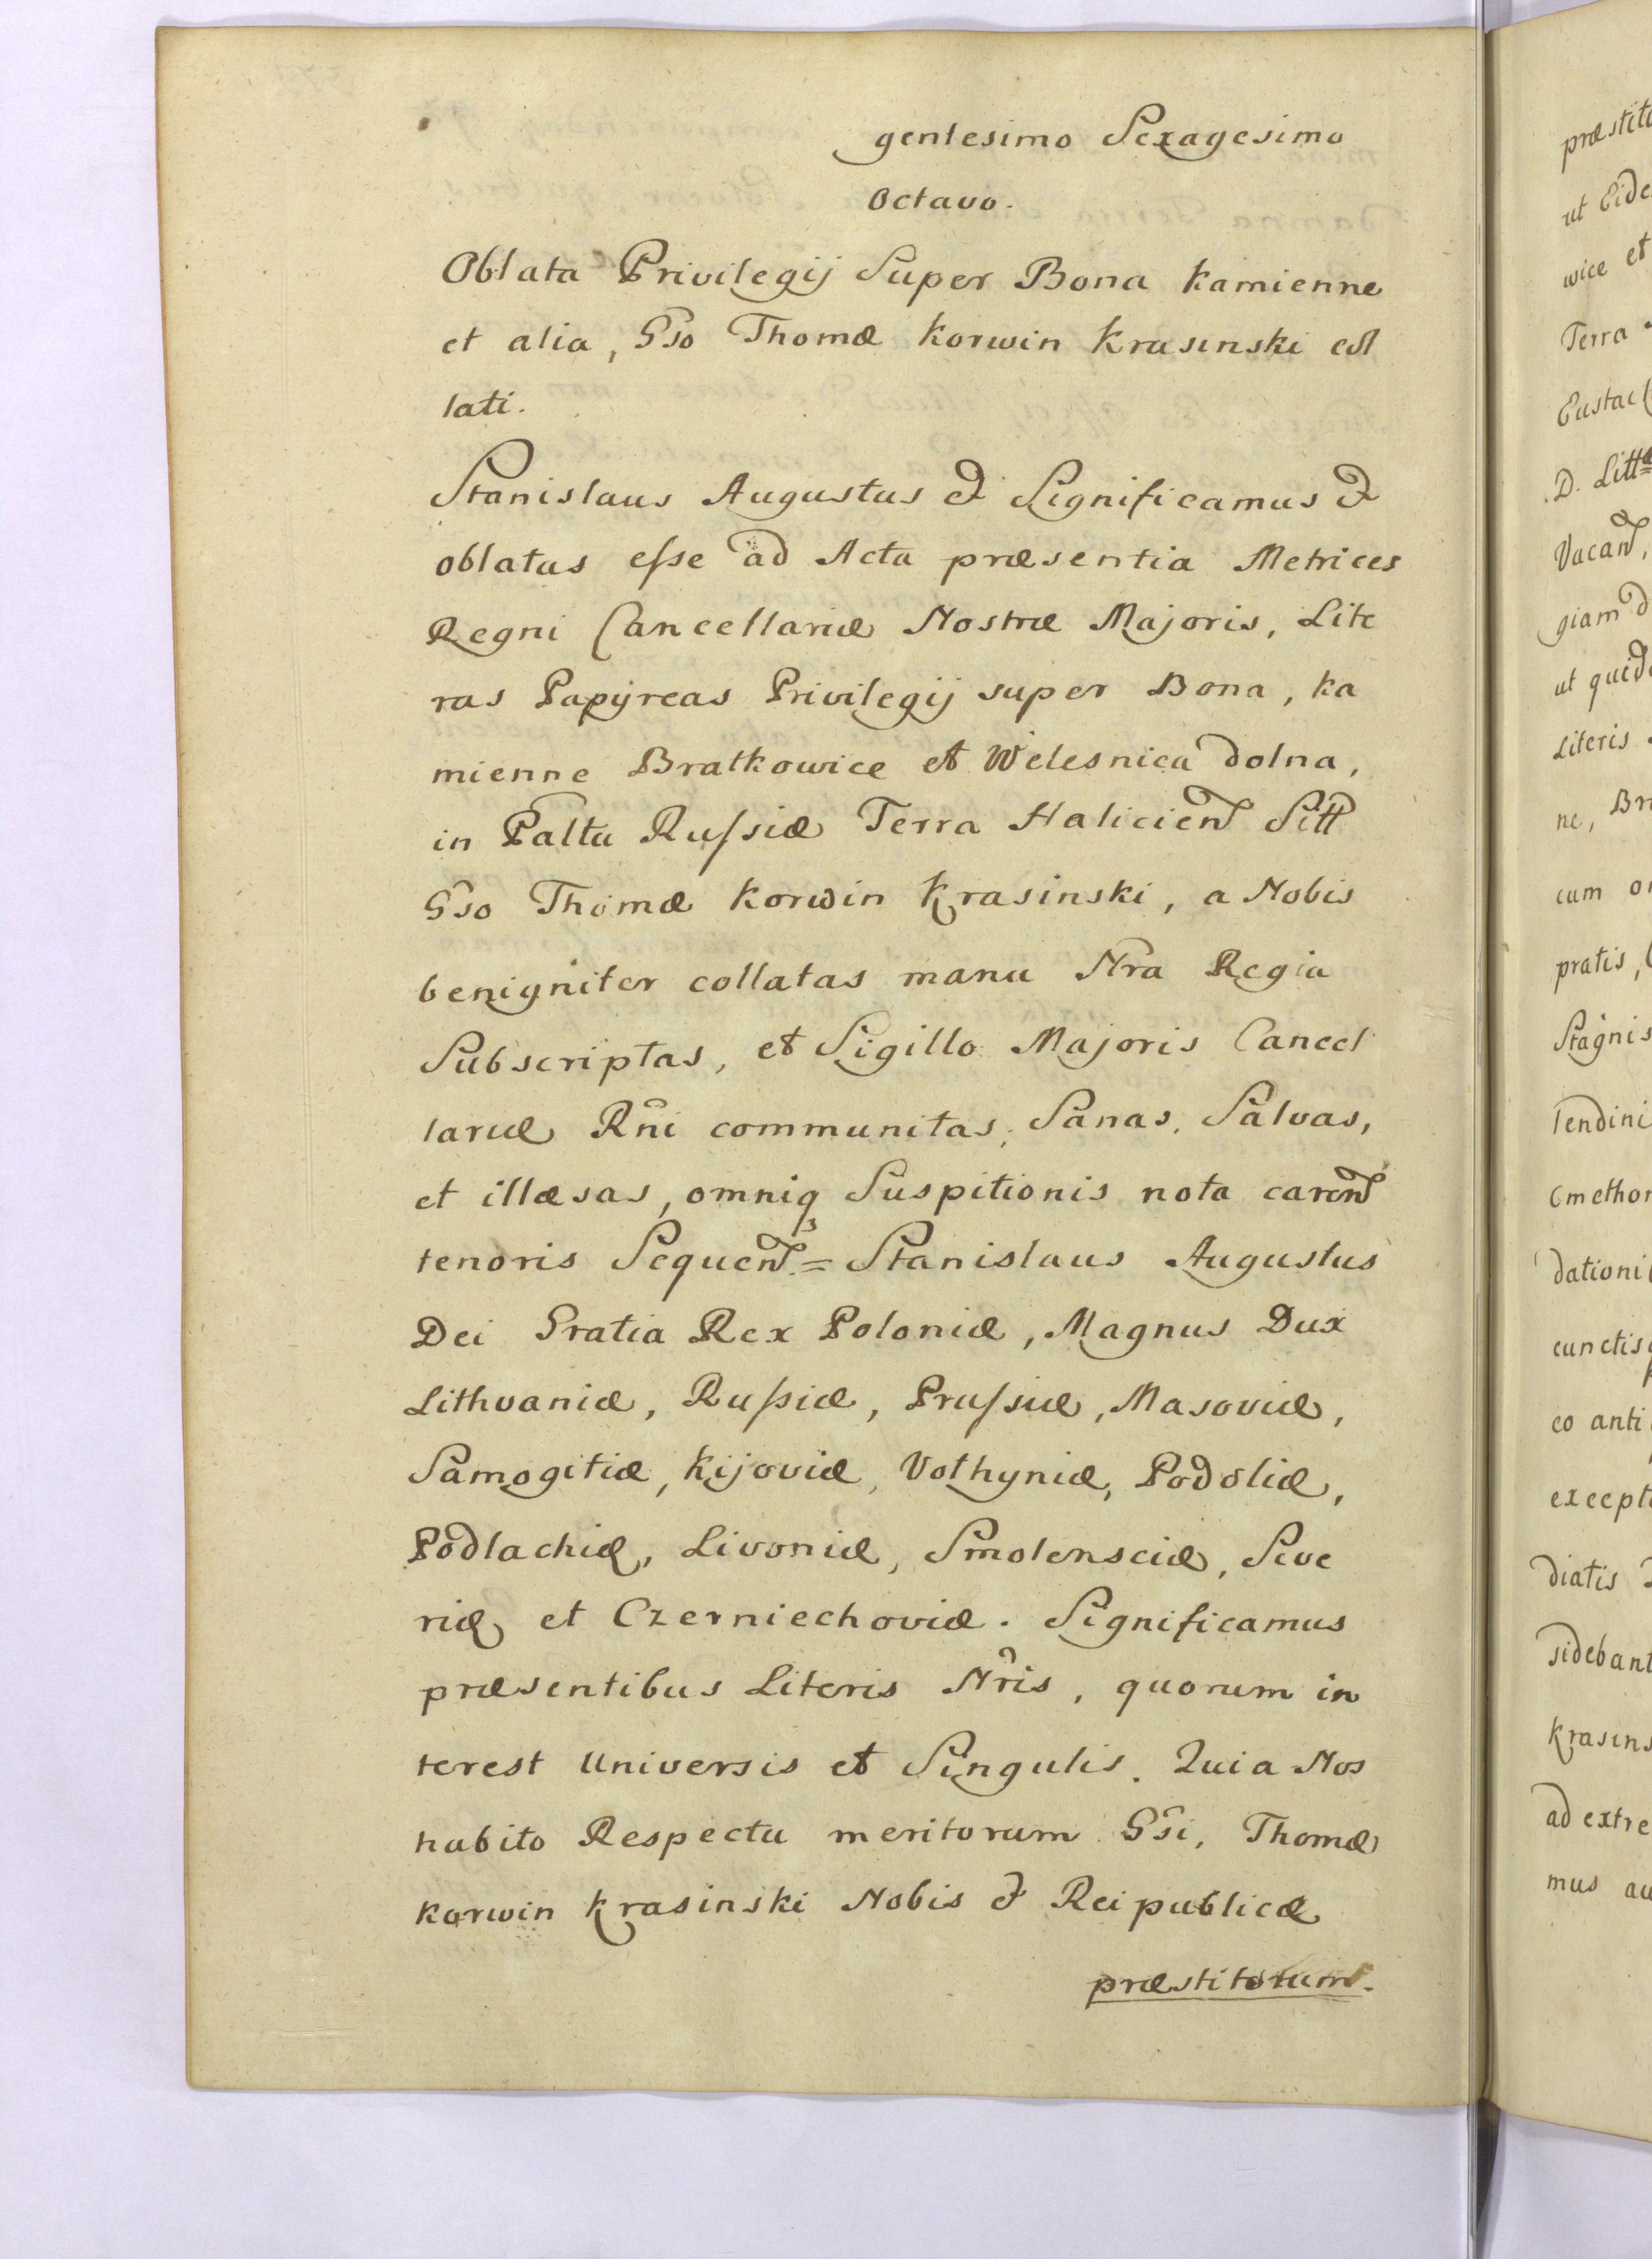 gentesimo Sexagesimo
Octavo.
Oblata Privilegij Super Bona Kamienne
et alia, Gso Thomæ Korwin Krasinski col
lati.
Stanislaus Augustus & Significamus &
oblatas esse ad Acta præsentia Metrices
Regni Cancellariæ Nostræ Majoris, Lite
ras Papyreas Privilegij super Bona, Ka
mienne Bratkowice et Welesnica dolna,
in Palttu Russiæ Terra Halicien Sitt
Gso Thomæ Korwin Krasinski, a Nobis
benigniter collatas manu Nra Regia
Subscriptas, et Sigillo Majoris Cancel
lariæ Rni communitas, Sanas, Salvas,
et illæsas, omniq3 Suspitionis nota caren
tenoris Sequen = Stanislaus Augustus
Dei Gratia Rex Poloniæ, Magnus Dux
Lithvaniæ, Russiæ, Prussiæ, Masoviæ,
Samogitiæ, Kijoviæ, Volhyniæ, Podoliæ,
Podlachiæ, Livoniæ, Smolensciæ, Seve
riæ et Czerniechoviæ. Significamus
præsentibus Literis Nris, quorum in
terest Universis et Singulis. Quia Nos
habito Respectu meritorum Gsi, Thomæ
Korwin Krasinski Nobis & Reipublicæ
præstitorum.
præstito
ut Eide
wice et
Terra
Eustac
D. Litt
Vacan,
giam d
ut quid
Literis
ne, Bra
cum o
pratis,
Stagnis
lendini
Cmethon
dationi
cunctis
eo anti
except
diatis
sidebant
Krasins
ad extre
mus au